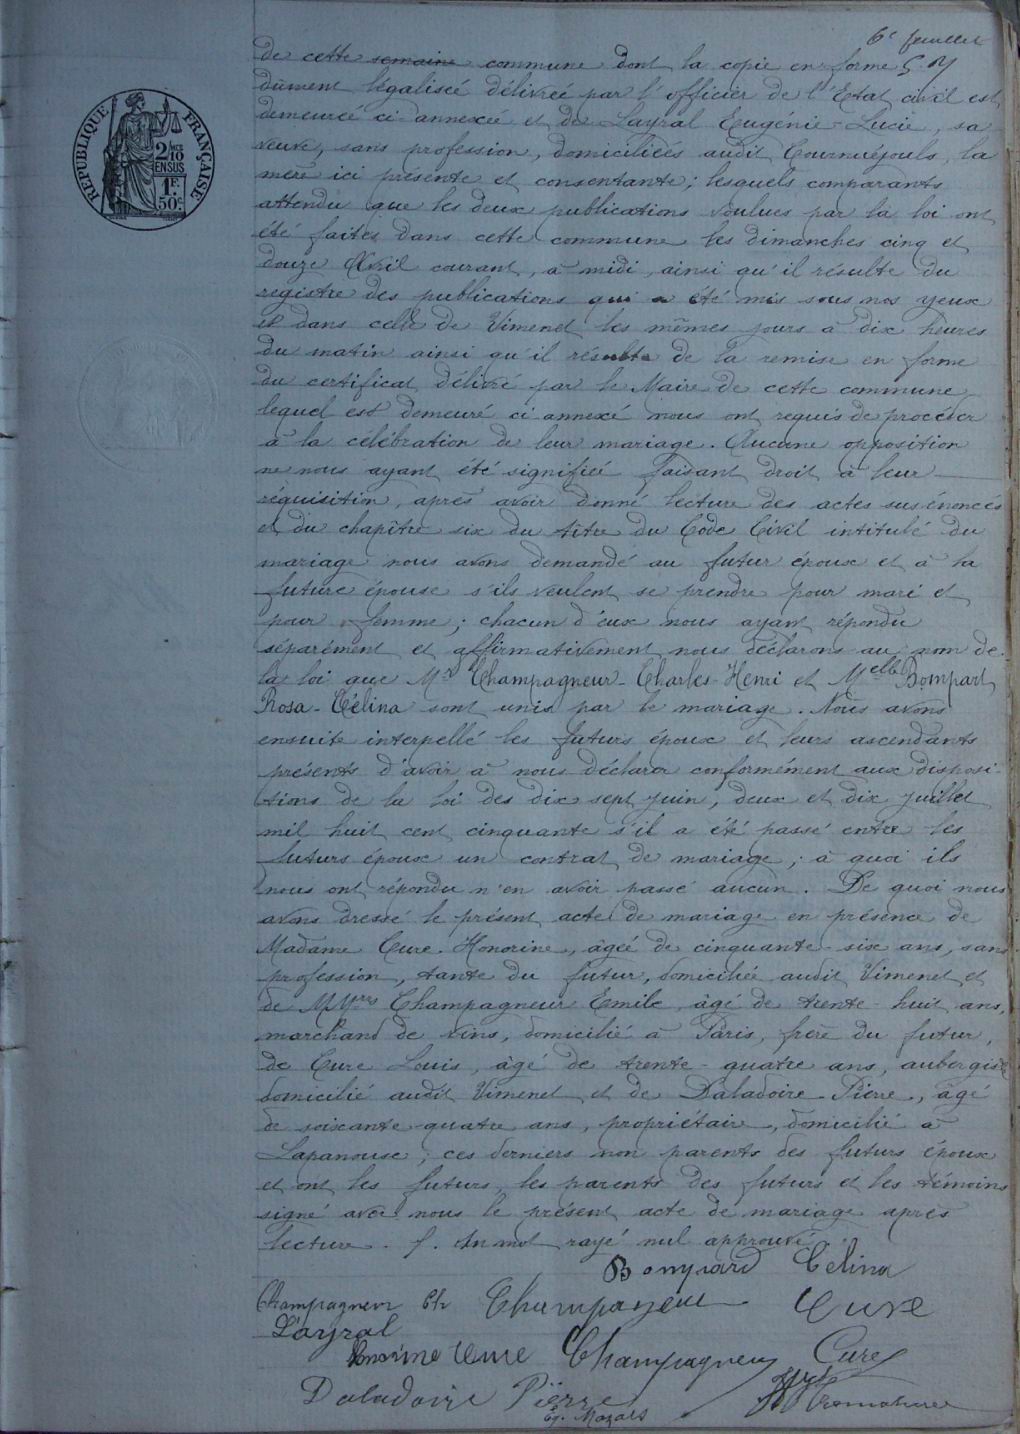 6e feuillet
de cette semaine commune dont la copie en forme
dûment légalisée délivrée par l'officier de l'Etat civil est
demeurée ci-annexée et de Layral Eugénie-Lucie, sa
veuve, sans profession, domiciliées audit Cournuéjouls, la
mère ici présente et consentante; lesquels comparants
attendu que les deux publications voulues par la loi ont
été faites dans cette commune les dimanches cinq et
douze Avril courant, à midi, ainsi qu'il résulte du
registre des publications qui a été mis sous nos yeux
et dans celle de Vimenet les mêmes jours à dix heures
du matin ainsi qu'il résulte de la remise en forme
du certificat délivré par le Maire de cette commune
lequel est demeuré ci annexé nous ont requis de procéder
à la célébration de leur mariage. Aucune opposition
ne nous ayant été signifiée faisant droit à leur
réquisition, après avoir donné lecture des actes susénoncés
et du chapître six du titre du Code Civil intitulé du
mariage nous avons demandé au futur époux et à la
future épouse s'ils veulent se prendre pour mari et
pour femme; chacun d'eux nous ayant répondu
séparément et affirmativement nous déclarons au nom de
la loi que Mr Champagneur-Charles-Henri et Melle Bompart
Rosa-Célina sont unis par le mariage. Nous avons
ensuite interpellé les futurs époux et leurs ascendants
présents d'avoir à nous déclarer conformément aux disposi-
tions de la loi des dix sept juin, deux et dix juillet
mil huit cent cinquante s'il a été passé entre les
futurs époux un contrat de mariage; à quoi ils
nous ont répondu n'en avoir passé aucun. De quoi nous
avons dressé le présent acte de mariage en présence de
Madame Cure-Honorine, âgée de cinquante-six ans, sans
profession, tante du futur, domiciliée audit Vimenet et
de MMrs Champagneur Emile, âgé de trente-huit ans,
marchand de vins, domicilié à Paris, frère du futur,
de Cure Louis, âgé de trente-quatre ans, aubergiste
domicilié audit Vimenet et de Daladoire-Pierre, âgé
de soixante-quatre ans, propriétaire, domicilié à
Lapanouse; ces derniers non parents des futurs époux
et ont les futurs, les parents des futurs et les témoins
signé avec nous le présent acte de mariage après
lecture. Un mot rayé nul approuvé.
Bompard Célina
Champagneur Ch Champagneur Cure
Layral
Honorine Cure Champagneur Cure
Daladoire Pierre
Mazars
REPUBLIQUE FRANÇAISE
2/10
EN SUS
1F.
50c.